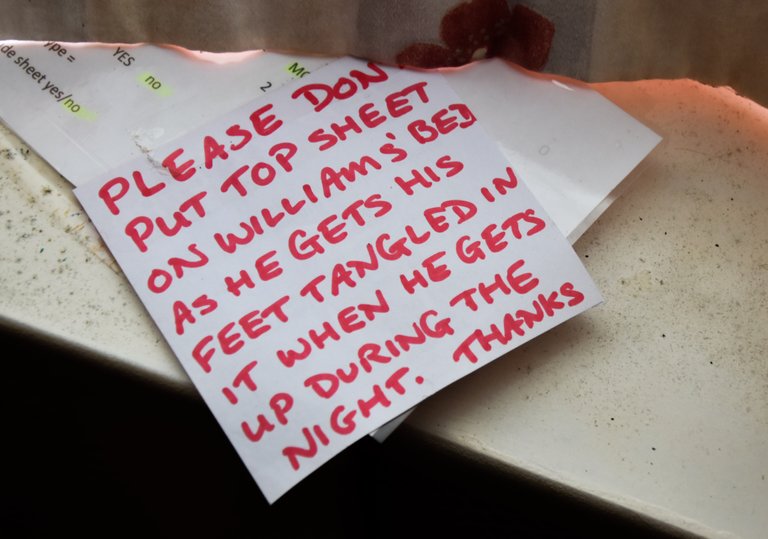 ype =
YES
de sheet yes/no
no
2
PLEASE DON
PUT TOP SHEET
ON WILLIAMS' BED
AS HE GETS HIS
FEET TANGLED IN
IT WHEN HE GETS
UP DURING THE
NIGHT. THANKS